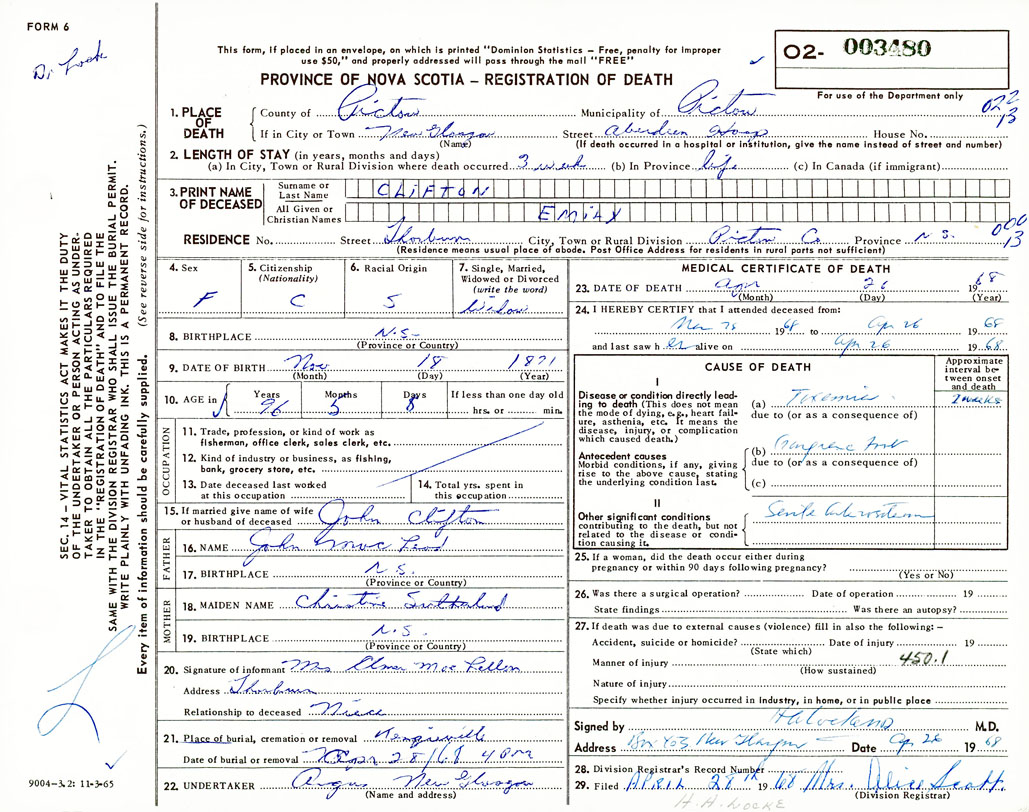 FORM 6
This form, if placed in an envelope, on which is printed "Dominion Statistics – Free, penalty for improper
use $50," and properly addressed will pass through the mail "FREE"
PROVINCE OF NOVA SCOTIA – REGISTRATION OF DEATH
O2- 003480
For use of the Department only
022
13
1. PLACE OF DEATH
County of Pictou Municipality of Pictou
If in City or Town New Glasgow Street Aberdeen Hosp House No.
(Name) (If death occurred in a hospital or institution, give the name instead of street and number)
2. LENGTH OF STAY (in years, months and days)
(a) In City, Town or Rural Division where death occurred 3 week (b) In Province life (c) In Canada (if immigrant)
3. PRINT NAME OF DECEASED
Surname or Last Name CLIFTON
All Given or Christian Names
RESIDENCE No. Street Thorburn City, Town or Rural Division Pictou Co. Province N.S.
(Residence means usual place of abode. Post Office Address for residents in rural parts not sufficient)
000
13
4. Sex F
5. Citizenship (Nationality) C
6. Racial Origin S
7. Single, Married, Widowed or Divorced (write the word) Widow
8. BIRTHPLACE N.S.
(Province or Country)
9. DATE OF BIRTH Nov 18 1871
(Month) (Day) (Year)
10. AGE in Years 96 Months 5 Days 8 If less than one day old hrs. or min.
OCCUPATION
11. Trade, profession, or kind of work as
fisherman, office clerk, sales clerk, etc.
12. Kind of industry or business, as fishing,
bank, grocery store, etc.
13. Date deceased last worked
at this occupation
14. Total yrs. spent in
this occupation
15. If married give name of wife
or husband of deceased John Clifton
FATHER
16. NAME John Mac Leod
17. BIRTHPLACE N.S.
(Province or Country)
MOTHER
18. MAIDEN NAME Christine Sutherland
19. BIRTHPLACE N.S.
(Province or Country)
20. Signature of informant Mrs Elmer Mac
Address Thorburn
Relationship to deceased Niece
21. Place of burial, cremation or removal
Date of burial or removal Apr 28/68 4 PM
22. UNDERTAKER Angus New Glasgow
(Name and address)
MEDICAL CERTIFICATE OF DEATH
23. DATE OF DEATH Apr 26 1968
(Month) (Day) (Year)
24. I HEREBY CERTIFY that I attended deceased from:
1968 to Apr 26 1968
and last saw her alive on Apr 26 1968
CAUSE OF DEATH
Approximate interval between onset and death
I
Disease or condition directly lead-
ing to death (This does not mean
the mode of dying, e.g., heart fail-
ure, asthenia, etc. It means the
disease, injury, or complication
which caused death.)
(a) Toxemia 2 weeks
due to (or as a consequence of)
Antecedent causes
Morbid conditions, if any, giving
rise to the above cause, stating
the underlying condition last.
(b) Gangrene foot
due to (or as a consequence of)
(c)
II
Other significant conditions
contributing to the death, but not
related to the disease or condi-
tion causing it.
Senile
25. If a woman, did the death occur either during
pregnancy or within 90 days following pregnancy?
(Yes or No)
26. Was there a surgical operation? Date of operation 19
State findings Was there an autopsy?
27. If death was due to external causes (violence) fill in also the following: –
Accident, suicide or homicide? Date of injury 19
(State which)
Manner of injury 450.1
(How sustained)
Nature of injury
Specify whether injury occurred in industry, in home, or in public place
Signed by M.D.
Address New Glasgow Date Apr 26 1968
28. Division Registrar's Record Number
29. Filed APRIL 28th 1968 Mrs. Alice Scott
(Division Registrar)
H.A. LOCKE
Dr Locke
SEC. 14 – VITAL STATISTICS ACT MAKES IT THE DUTY
OF THE UNDERTAKER OR PERSON ACTING AS UNDER-
TAKER TO OBTAIN ALL THE PARTICULARS REQUIRED
IN THE "REGISTRATION OF DEATH" AND TO FILE THE
SAME WITH THE DIVISION REGISTRAR WHO SHALL ISSUE THE BURIAL PERMIT.
WRITE PLAINLY WITH UNFADING INK. THIS IS A PERMANENT RECORD.
Every item of information should be carefully supplied. (See reverse side for instructions.)
9004-3.2: 11-3-65